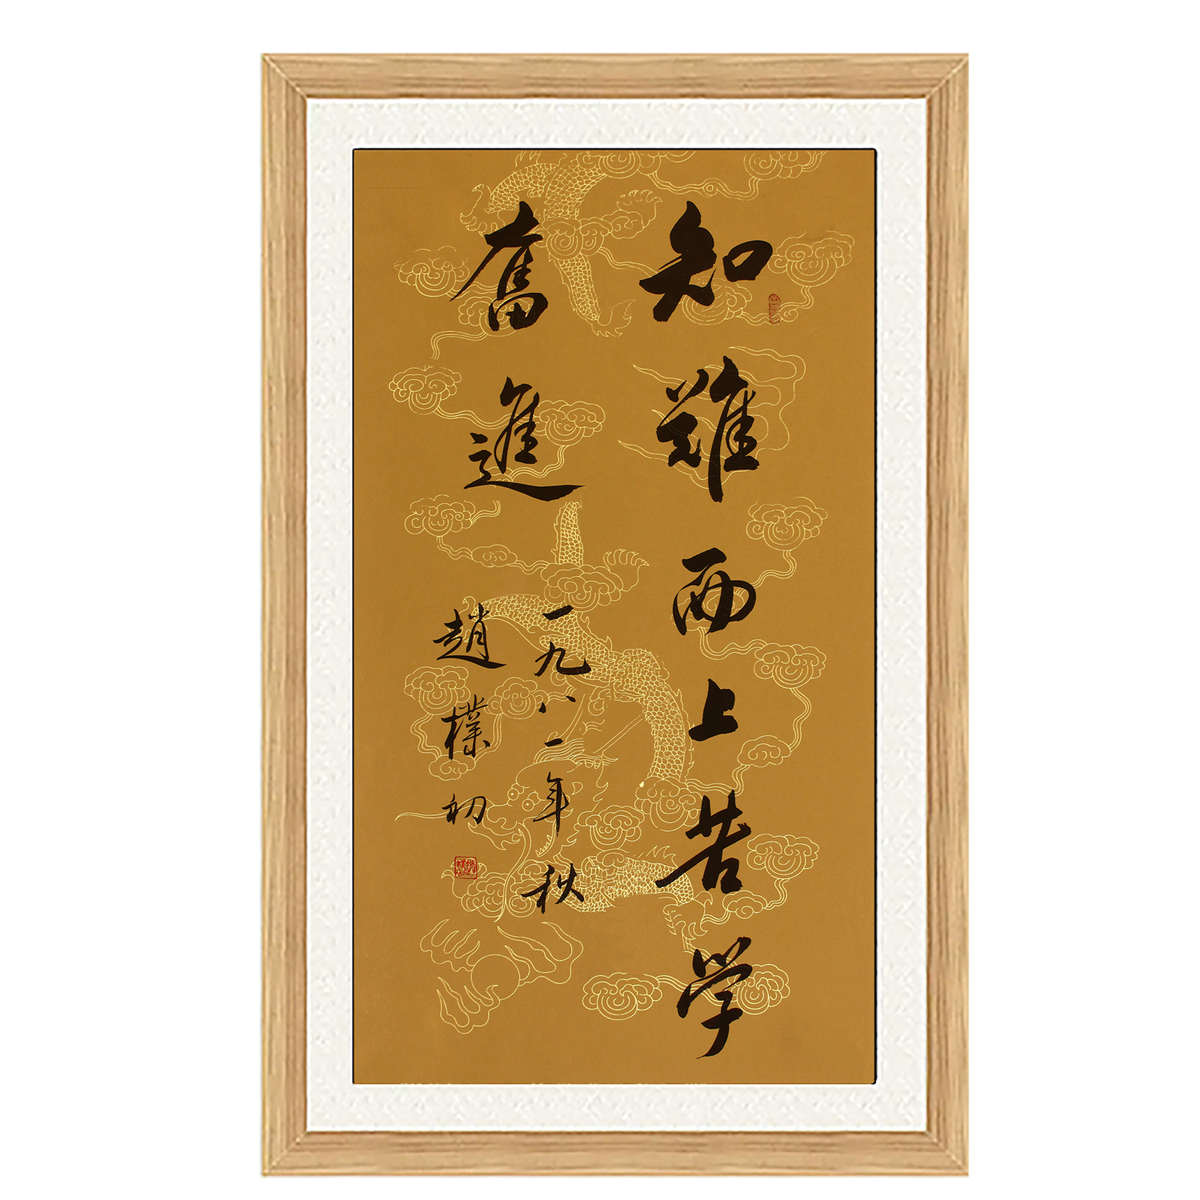 知難而上苦学
奮進
一九八二年秋
趙樸初